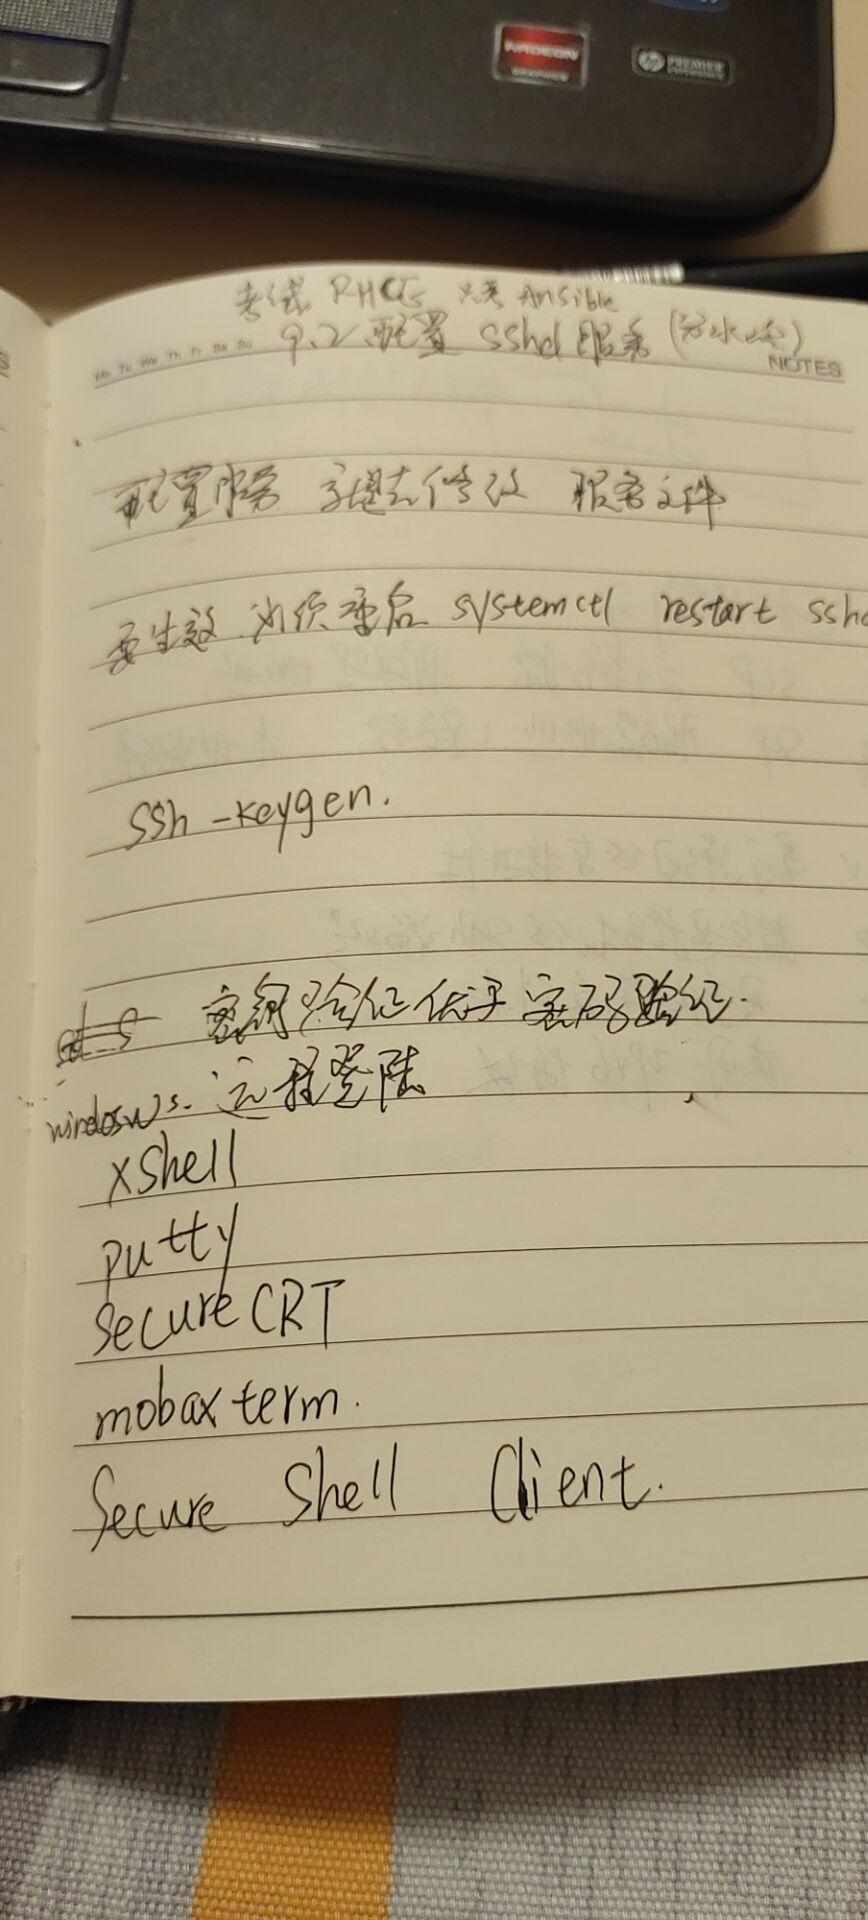 RADEON
GRAPHICS
hp PREMIER
EXPERIENCE
考试 RHCE 只考 Ansible
9.2 配置 sshd 服务
Mo Tu We Th Fr Sa Su
NOTES
配置服务 就是去修改 服务文件
要生效 必须重启 systemctl restart sshd
ssh-keygen.
密钥验证优于密码验证.
windows. 远程登陆
xshell
putty
SecureCRT
mobaxterm.
Secure Shell Client.